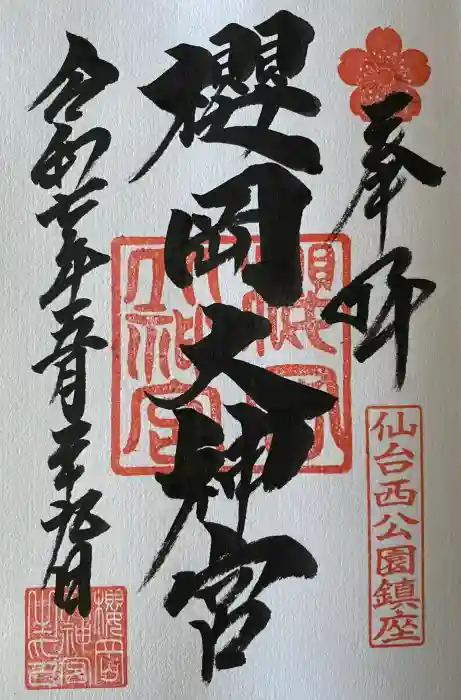 奉拝
仙台西公園鎮座
櫻岡大神宮
櫻岡大神宮
令和七年五月二十九日